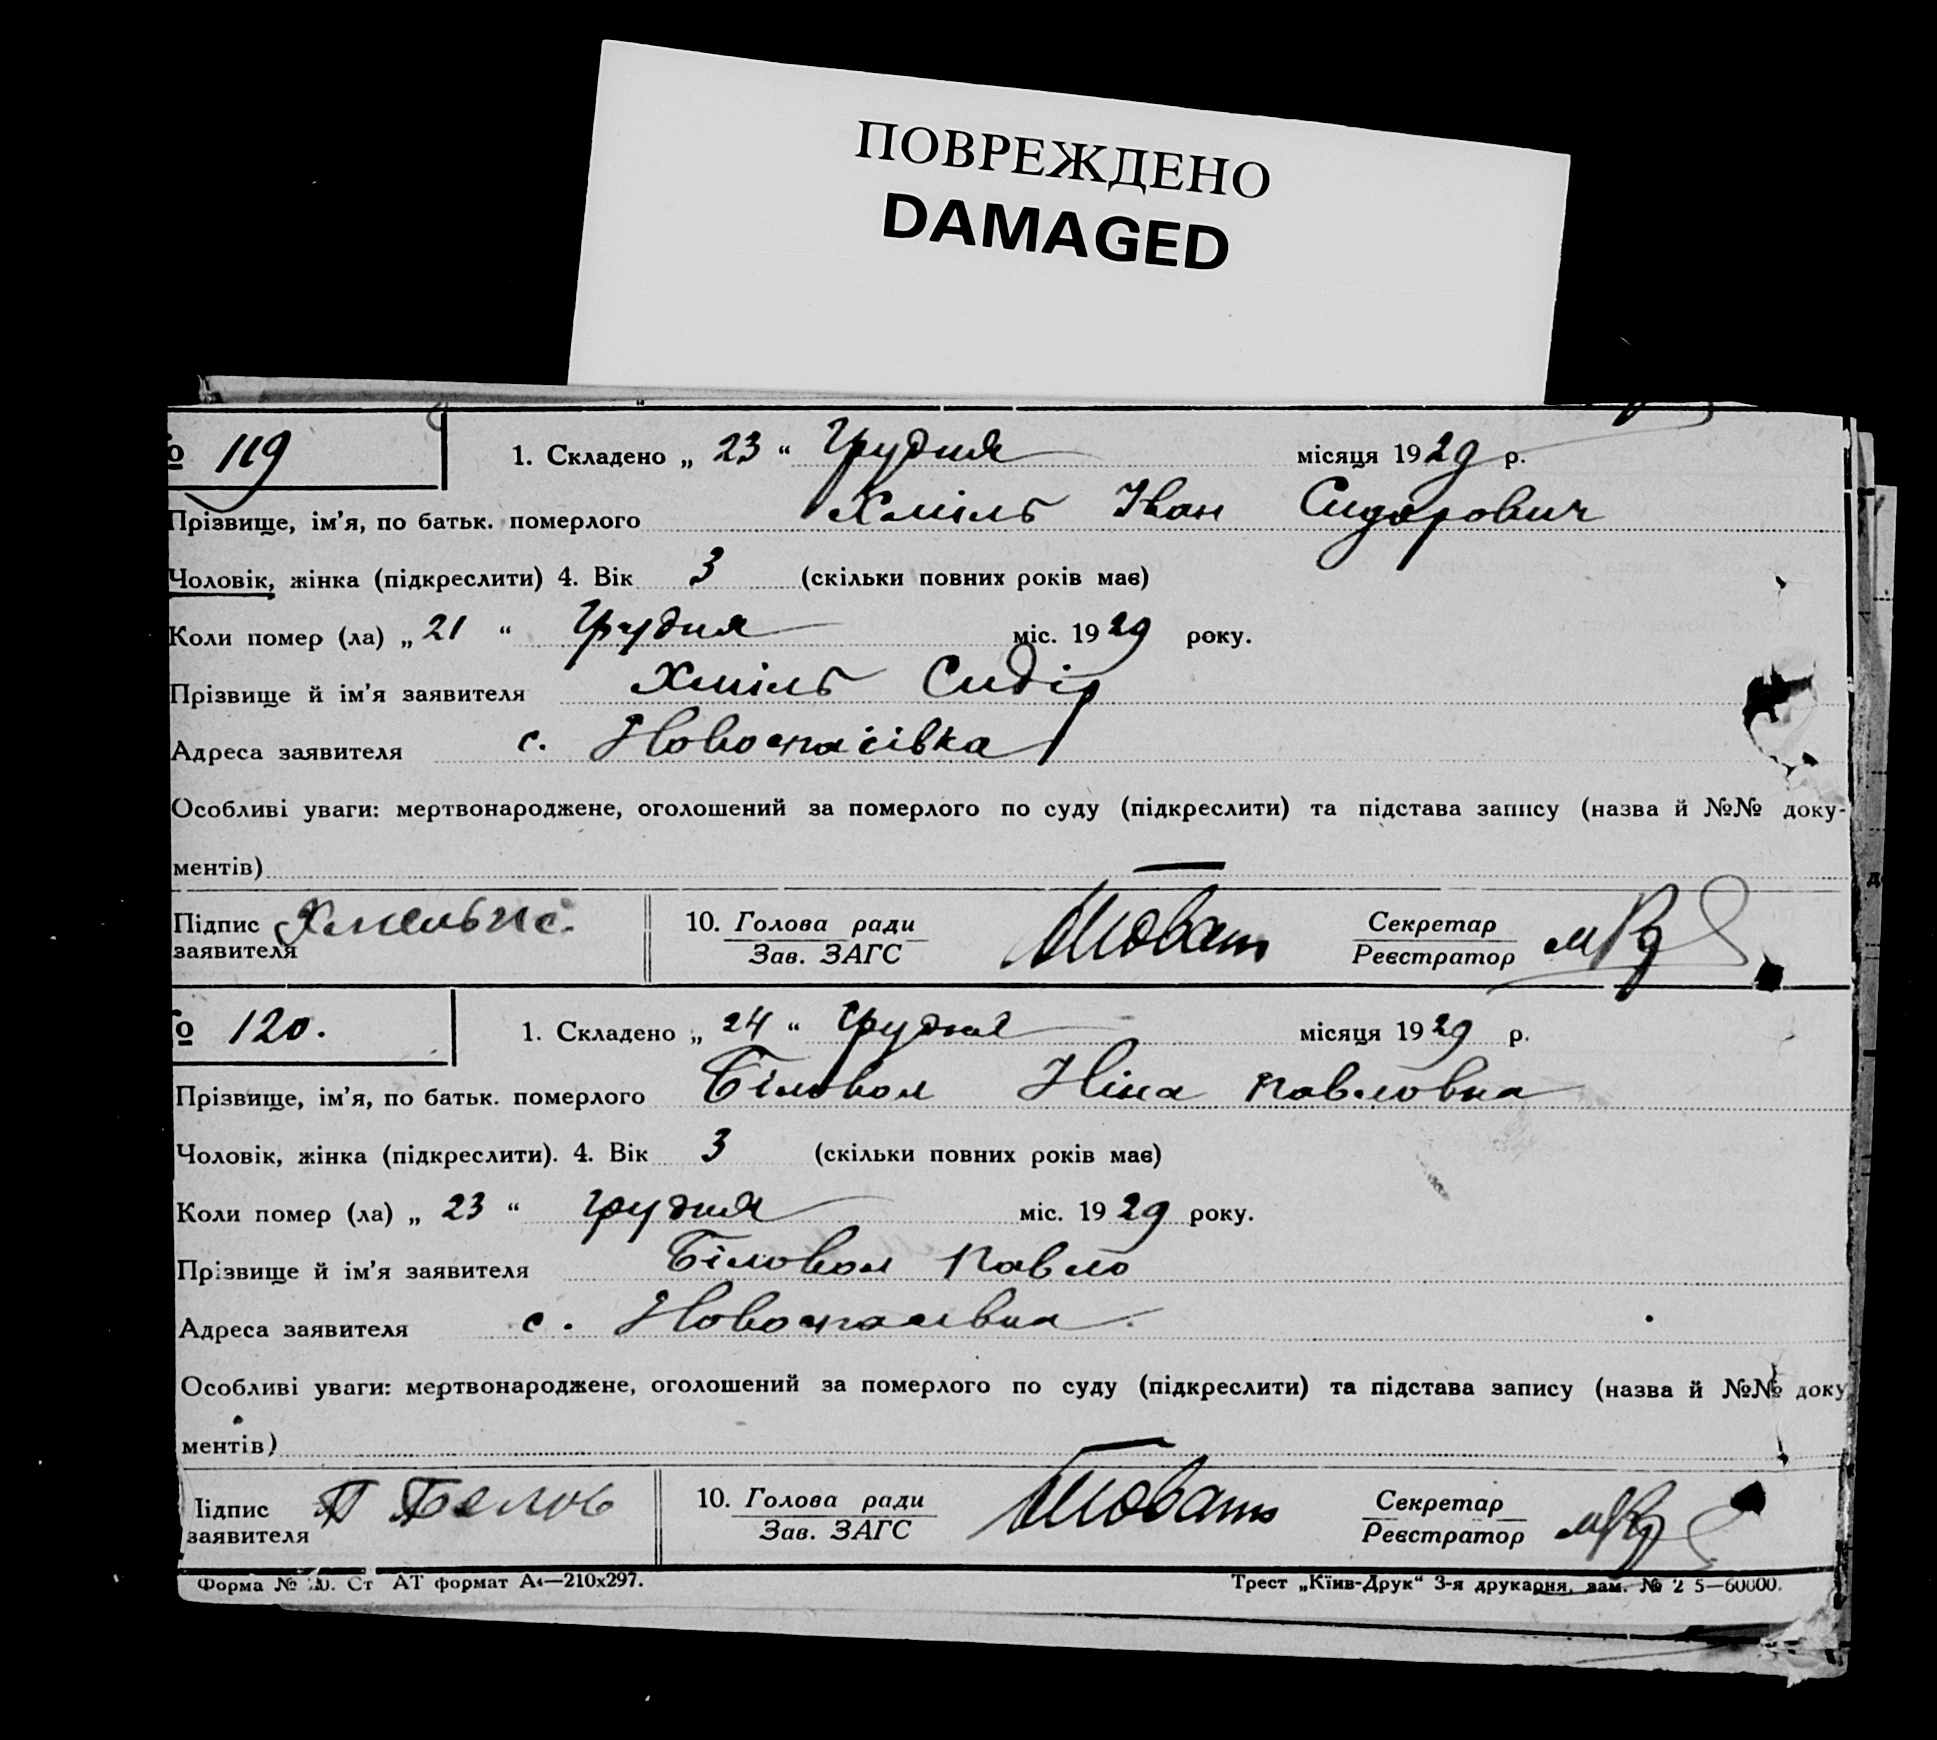 ПОВРЕЖДЕНО
DAMAGED
№ 119
1. Складено „ 23 “ Грудня місяця 1929 р.
Прізвище, ім’я, по батьк. померлого Хміль Іван Сидорович
Чоловік, жінка (підкреслити) 4. Вік 3 (скільки повних років має)
Коли помер (ла) „ 21 “ Грудня міс. 1929 року.
Прізвище й ім’я заявителя Хміль Сидір
Адреса заявителя с. Новоспасівка
Особливі уваги: мертвонароджене, оголошений за померлого по суду (підкреслити) та підстава запису (назва й №№ доку-
ментів)
Підпис заявителя
10. Голова ради
Зав. ЗАГС
Секретар
Реєстратор
№ 120.
1. Складено „ 24 “ грудня місяця 1929 р.
Прізвище, ім’я, по батьк. померлого Біловол Ніна Павловна
Чоловік, жінка (підкреслити). 4. Вік 3 (скільки повних років має)
Коли помер (ла) „ 23 “ грудня міс. 1929 року.
Прізвище й ім’я заявителя Біловол Павло
Адреса заявителя с. Новоспасівка
Особливі уваги: мертвонароджене, оголошений за померлого по суду (підкреслити) та підстава запису (назва й №№ доку
ментів)
Підпис заявителя П Белов
10. Голова ради
Зав. ЗАГС
Секретар
Реєстратор
Форма № 20. Ст АТ формат А4—210х297.
Трест „Київ-Друк“ 3-я друкарня, зам. № 2 5—60000.